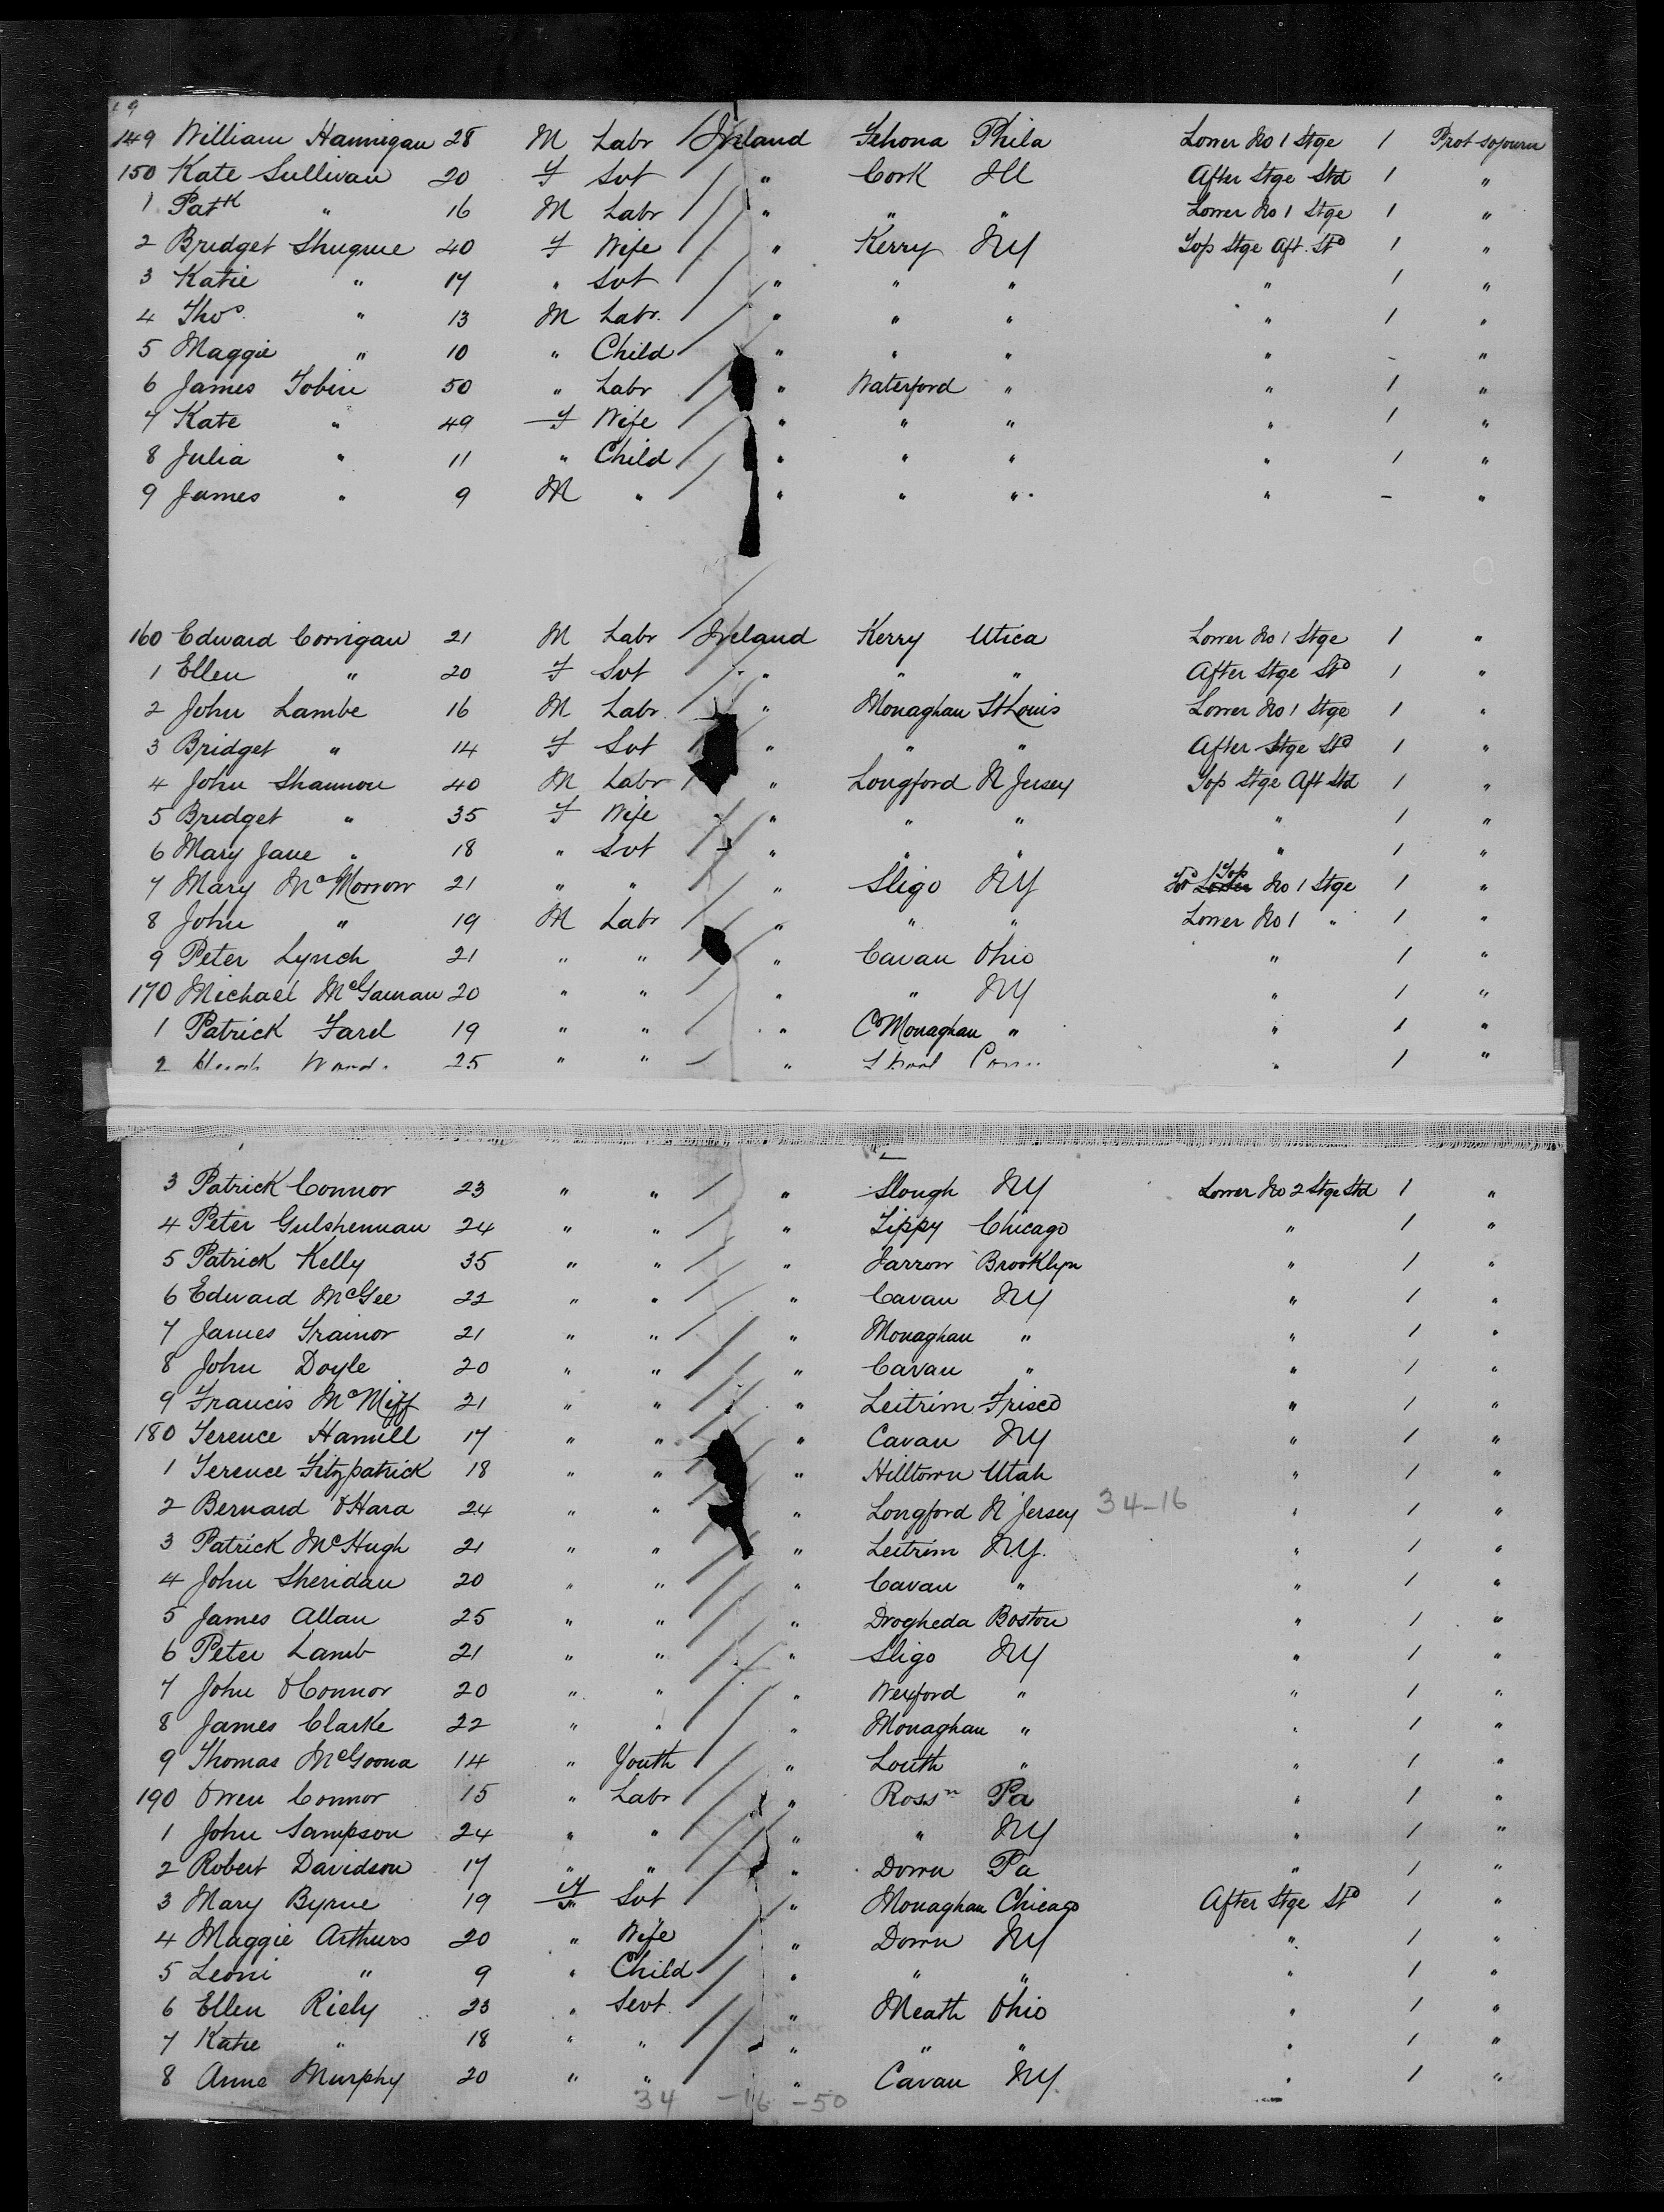 149 William Hannigan 28 M Labr Ireland Phila Lower No 1 Stge 1 Prot sojourn
150 Kate Sullivan 20 F Svt " Cork Ill After Stge Std 1 "
1 Patk " 16 M Labr " " " Lower No 1 Stge 1 "
2 Bridget Shugrue 40 F Wife " Kerry NY Top Stge Aft. Std 1 "
3 Katie " 17 " Svt " " " " 1 "
4 Thos. " 13 M Labr. " " " " 1 "
5 Maggie " 10 " Child " " " " - "
6 James Tobin 50 " Labr " Waterford " " 1 "
7 Kate " 49 F Wife " " " " 1 "
8 Julia " 11 " Child " " " " 1 "
9 James " 9 M " " " " " - "
160 Edward Corrigan 21 M Labr Ireland Kerry Utica Lower No 1 Stge 1 "
1 Ellen " 20 F Svt " " " After Stge Std 1 "
2 John Lambe 16 M Labr " Monaghan St Louis Lower No 1 Stge 1 "
3 Bridget " 14 F Svt " " " After Stge Std 1 "
4 John Shannon 40 M Labr " Longford N Jersey Top Stge Aft Std 1 "
5 Bridget " 35 F Wife " " " " 1 "
6 Mary Jane " 18 " Svt " " " " 1 "
7 Mary McMorrow 21 " " " Sligo NY Top No 1 Stge 1 "
8 John " 19 M Labr " " " Lower No 1 " 1 "
9 Peter Lynch 21 " " " Cavan Ohio " 1 "
170 Michael McGaman 20 " " " " NY " 1 "
1 Patrick Farel 19 " " " Co Monaghan " " 1 "
2 Hugh Ward. 25 " " " " 1 "
3 Patrick Connor 23 " " " Slough NY Lower No 2 Stge Std 1 "
4 Peter Gulshennan 24 " " " Tippy Chicago " 1 "
5 Patrick Kelly 35 " " " Jarrow Brooklyn " 1 "
6 Edward McGee 22 " " " Cavan NY " 1 "
7 James Trainor 21 " " " Monaghan " " 1 "
8 John Doyle 20 " " " Cavan " " 1 "
9 Francis McNiff 21 " " " Leitrim Frisco " 1 "
180 Terence Hamill 17 " " " Cavan NY " 1 "
1 Terence Fitzpatrick 18 " " " Hilltown Utah " 1 "
2 Bernard O'Hara 24 " " " Longford N Jersey 34-16 " 1 "
3 Patrick McHugh 21 " " " Leitrim N.Y. " 1 "
4 John Sheridan 20 " " " Cavan " " 1 "
5 James Allan 25 " " " Drogheda Boston " 1 "
6 Peter Lamb 21 " " " Sligo NY " 1 "
7 John O'Connor 20 " " " Wexford " " 1 "
8 James Clarke 22 " " " Monaghan " " 1 "
9 Thomas McGoona 14 " Youth " Louth " " 1 "
190 Owen Connor 15 " Labr " Rossn Pa " 1 "
1 John Sampson 24 " " " " NY " 1 "
2 Robert Davidson 17 " " " Down Pa " 1 "
3 Mary Byrne 19 F Svt " Monaghan Chicago After Stge Std 1 "
4 Maggie Arthurs 20 " Wife " Down NY " 1 "
5 Leoni " 9 " Child " " " " 1 "
6 Ellen Riely 23 " Sevt. " Meath Ohio " 1 "
7 Katie " 18 " " " " " " 1 "
8 Anne Murphy 20 " " " Cavan NY " 1 "
34 -16 -50